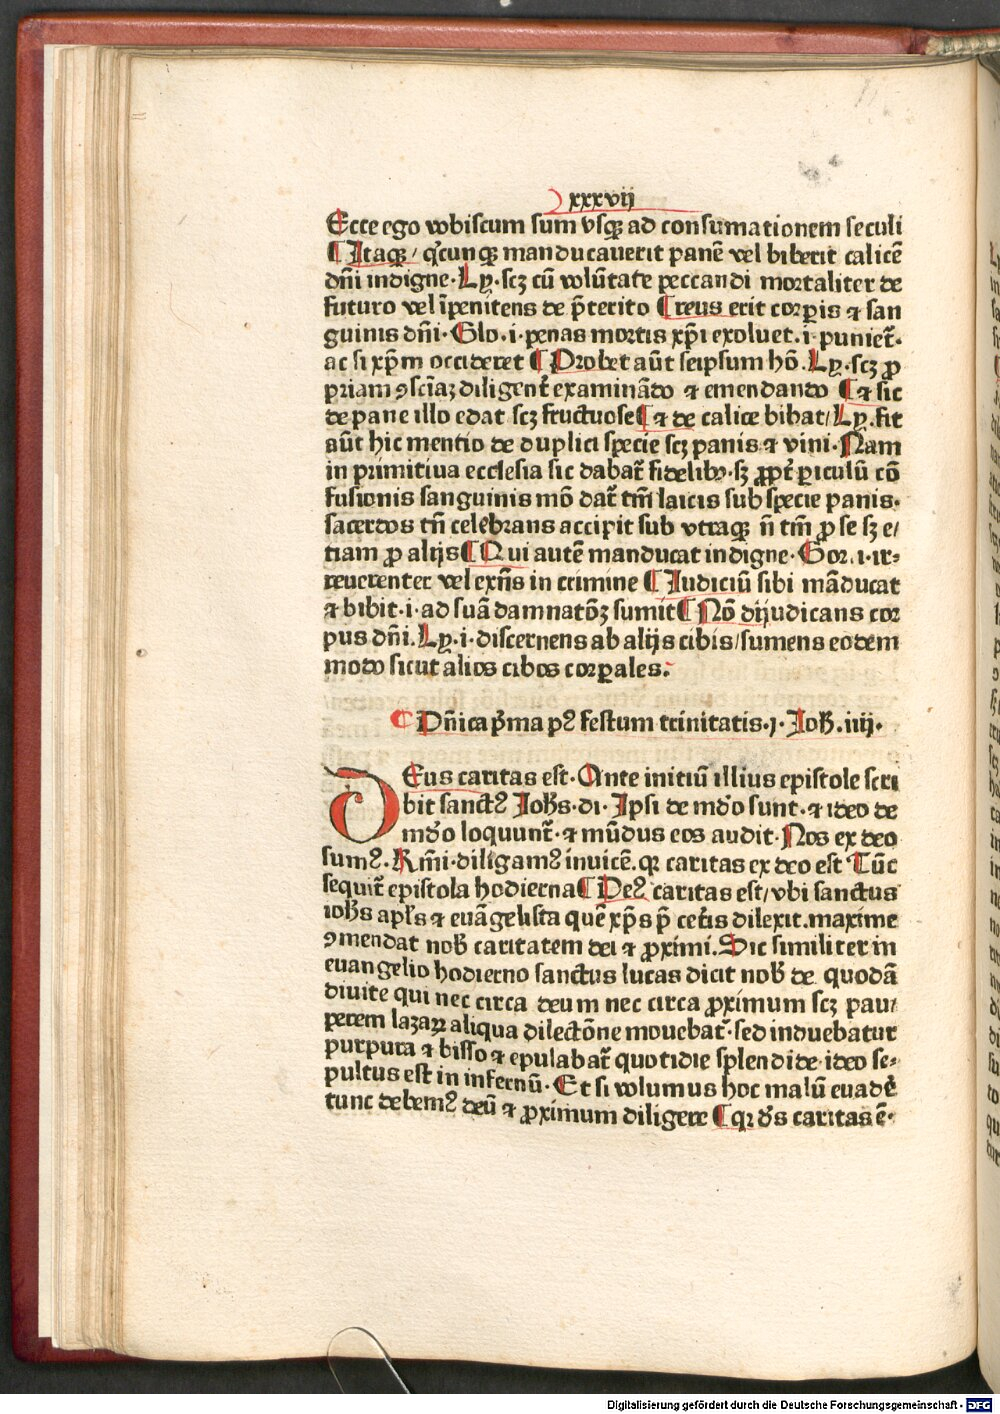 xxxvij
Ecce ego vobiscum sum vsqꝫ ad consumationem seculi
¶ Itaqꝫ / qͥcunqꝫ manducauerit panē vel biberit calicē
dn̄i indigne · Ly · scꝫ cū volūtate peccandi mortaliter de
futuro vel īpenitens de p̄terito ¶ reus erit corꝑis ⁊ san
guinis dn̄i · Glo · i · penas mortis xp̄i exoluet · i · punieꝉ ·
ac si xp̄m occideret ¶ Probet aūt seipsum hō · Ly · scꝫ ꝓ
priam ꝯsciāꝫ diligent̄ examinādo ⁊ emendando ¶ ⁊ sic
de pane illo edat scꝫ fructuose ¶ ⁊ de calice bibat / Ly · fit
aūt hic mentio de duplici specie scꝫ panis ⁊ vini · Nam
in primitiua ecclesia sic dabat̄ fidelibꝰ · sꝫ ꝓpt̄ ꝑiculū cō
fusionis sanguinis mō dat̄ tm̄ laicis sub specie panis ·
sacerdos tn̄ celebrans accipit sub vtraqꝫ n̄ tm̄ ꝓ se sꝫ e/
tiam ꝓ alijs ¶ Qui autē manducat indigne · Gor · i · ir⸗
reuerenter vel exn̄s in crimine ¶ Iudiciū sibi māducat
⁊ bibit · i · ad suā damnatōꝫ sumit ¶ Nō dijudicans cor
pus dn̄i · Ly · i · discernens ab alijs cibis / sumens eodem
modo sicut alios cibos corꝑales ·
¶ Dn̄ica pͥma pꝰ festum trinitatis · j · Joh̄ · iiij ·
DEus caritas est · Ante initiū illius epistole scri
bit sanctꝰ Joh̄s · di · Ipsi de mūdo sunt · ⁊ ideo de
mūdo loquunt̄ · ⁊ mūdus eos audit · Nos ex deo
sumꝰ · Kr̄mi · diligamꝰ inuicē · qꝛ caritas ex deo est Tūc
sequit̄ epistola hodierna ¶ Deꝰ caritas est / vbi sanctus
ioh̄s apl̄s ⁊ euāgelista quē xp̄s p̄ cet̄is dilexit · maxime
ꝯmendat nob̄ caritatem dei ⁊ ꝓximi · Sic similiter in
euangelio hodierno sanctus lucas dicit nob̄ de quodā
diuite qui nec circa deum nec circa ꝓximum scꝫ pau/
perem lazaꝝ aliqua dilectōne mouebat̄ · sed induebatur
purpura ⁊ bisso ⁊ epulabat̄ quotidie splendide · ideo se⸗
pultus est in infernū · Et si volumus hoc malū euadē
tunc debemꝰ deū ⁊ ꝓximum diligere ¶ qꝛ ds̄ caritas ē ·
Digitalisierung gefördert durch die Deutsche Forschungsgemeinschaft - DFG